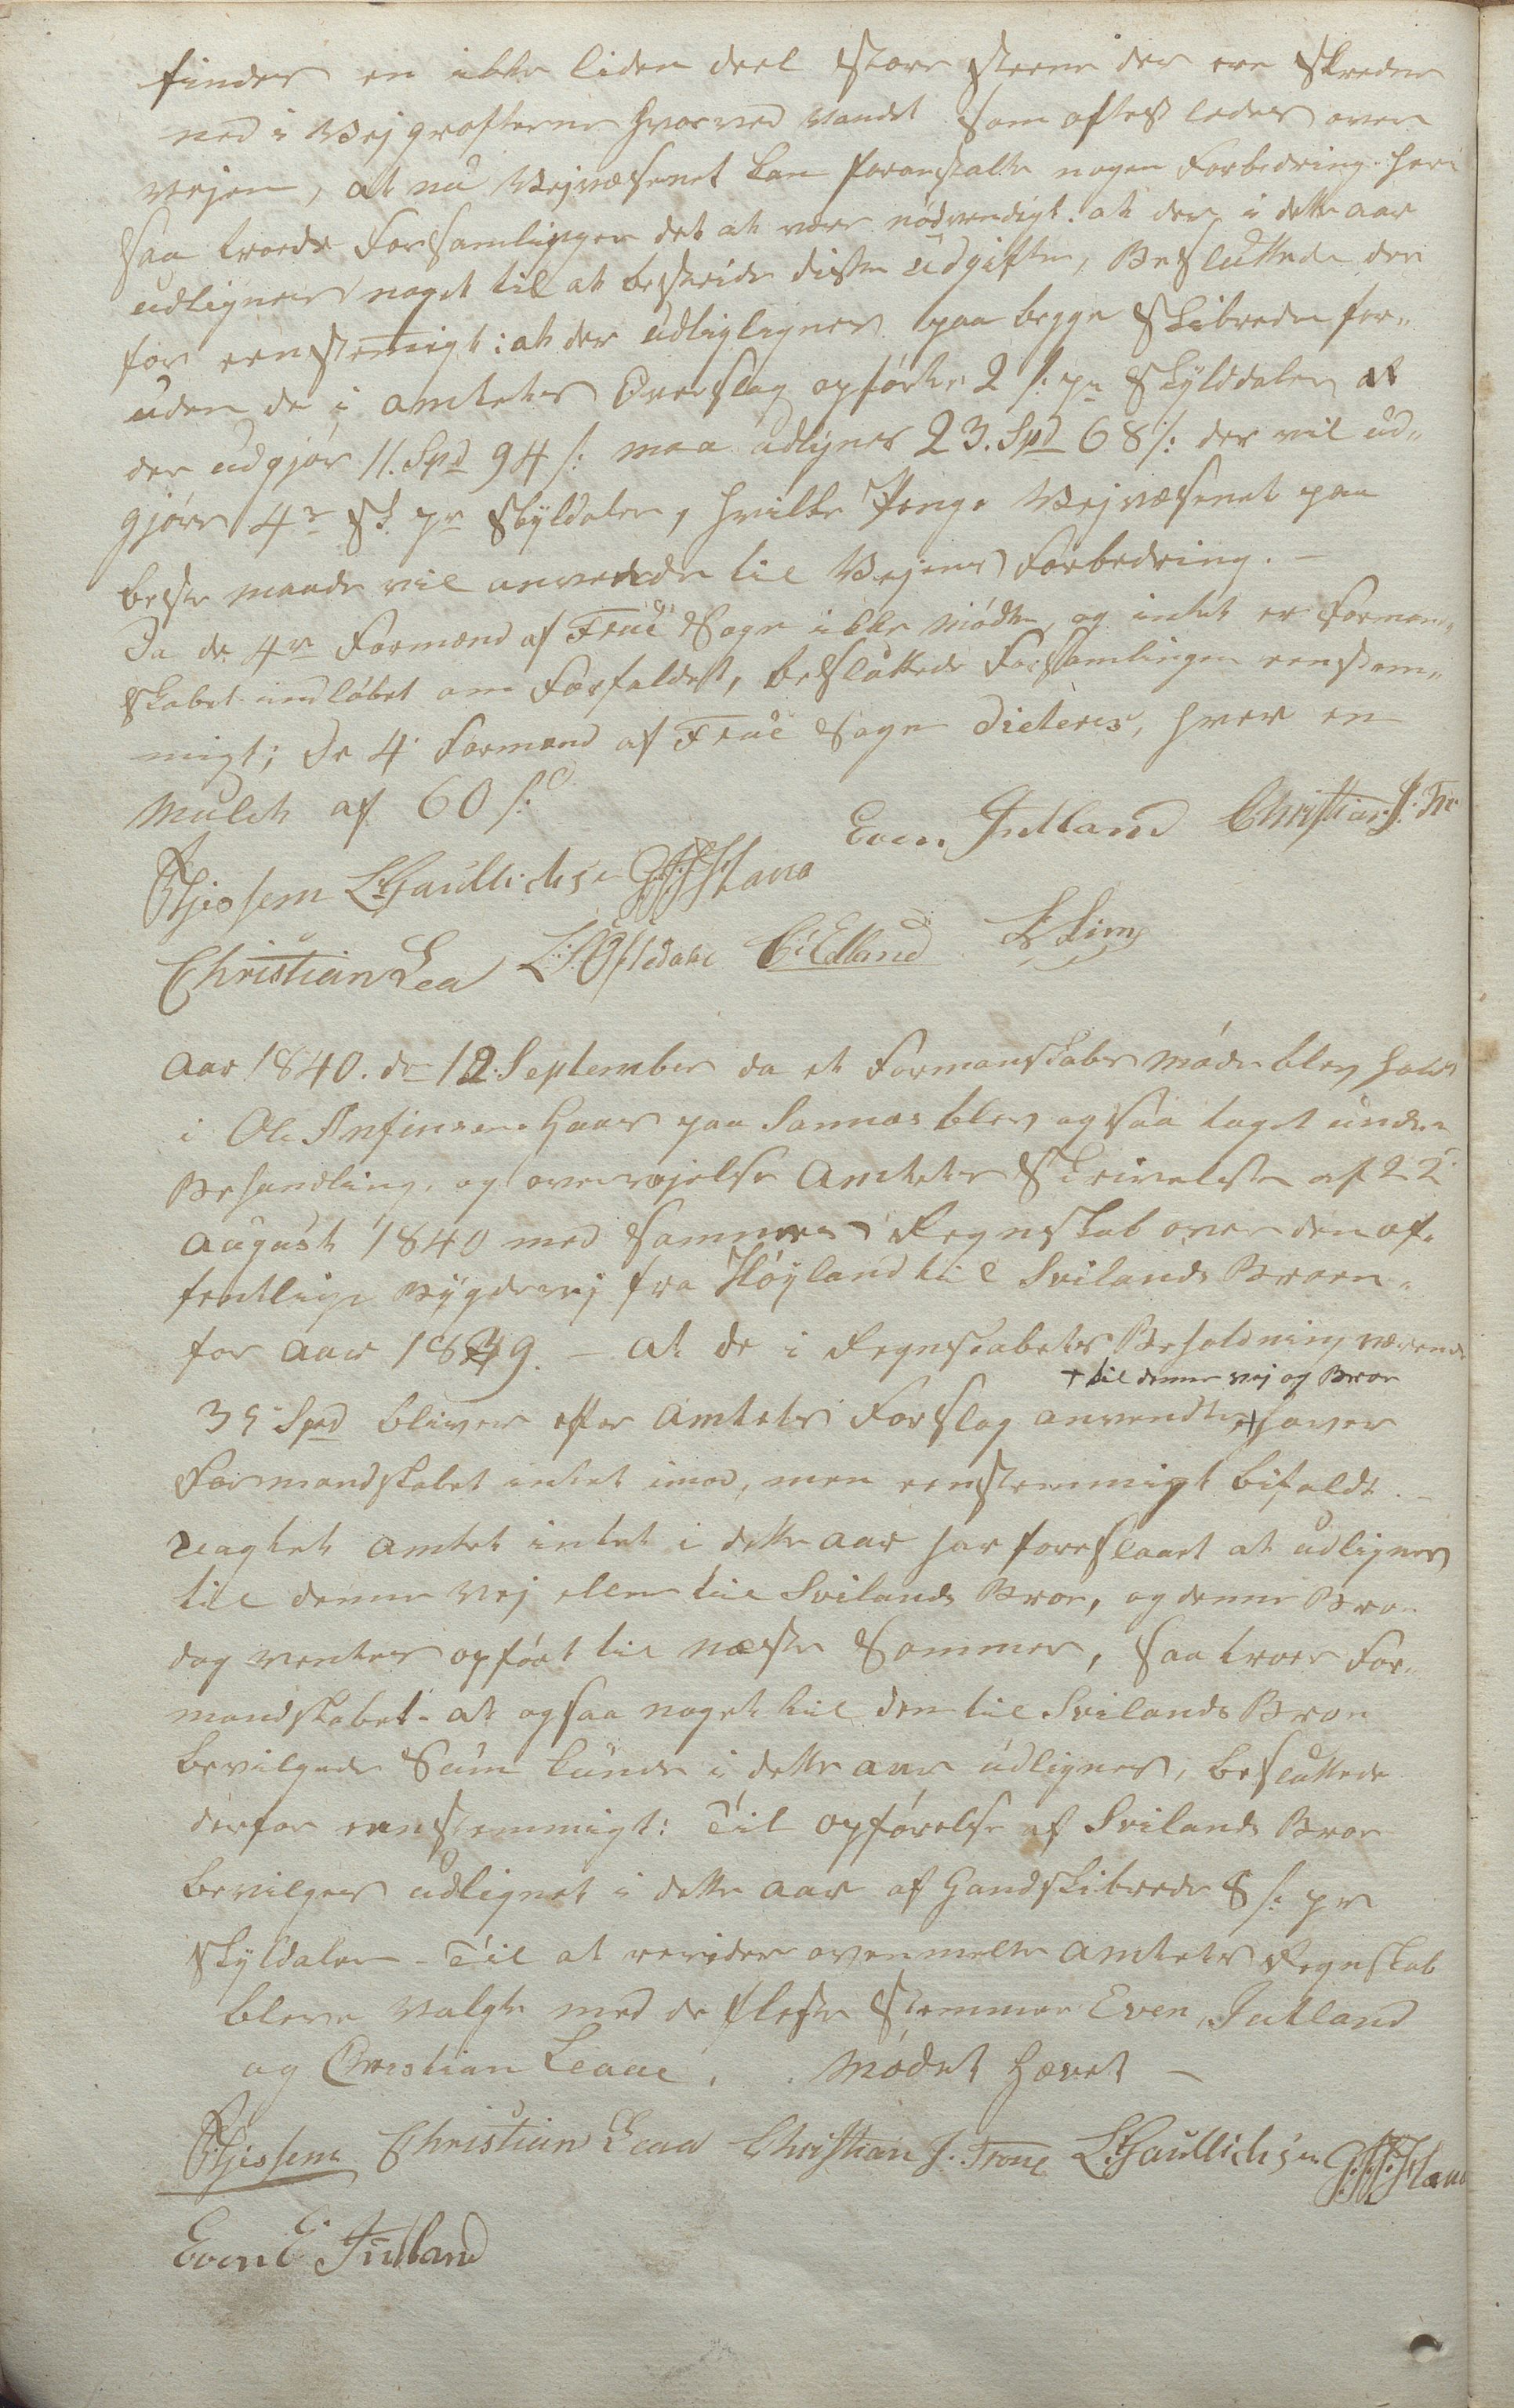 findes en ikke liden deel store Steene der ere Skredne
ned i Vejgrøfterne hvorved Vandet som oftest ledes over
vejen, at nu Vejvæsenet kan foranstalte nogen Forbedring heri
saa troede Forsamlingen det at være nødvendigt. at der i dette aar
udlignes noget til at bestride disse udgifter, Besluttede der
for eenstemigt: at der udligligner paa begge Skibreder for„
uden de i Amtets Overslag opførte 2 s: pr Skylddaler at
der udgjør 11. Spd 94 s: maa udlignes 23. Spd 68 s: der vil ud„
gjøre 4re sk. pr Skyldaler, hvilke Penge Vejvæsenet paa
beste maade vil anvende til Vejens Forbedring. –
Da de 4re Formænd af Frue Sogn ikke mødte, og intet er Formand„
skabet indløbet om Forfaldet, besluttede Forsamlingen eenstem„
migt; De 4 Formænd af Frue Sogn dicteres, hver en
Mulct af 60 s:
Even Jutland Christian J.
L. Gaullichsen
Christian Lea C: Edland
Aar 1840. dn 12. September da et Formanskabs møde blev holdt
i Ole Anfinsens Huus paa Sannæs blev og saa taget under
Behandling, og overvejelse Amtets Skrivelse af 22
August 1840 med sammes Regnskab over den of„
fentlige Bygdevej fra Høyland til Svilands Broen.
for Aar 1839. – At de i Regnskabets Beholdning værende
+ til denne vej og Broe
35 Spd bliver efter Amtets Forslag anvendte + haver
Formandskabet intet imod, men eenstemmigt bifaldt. –
Uagtet Amtet intet i dette Aar har foreslaaet at udlignes
til denne Vej eller til Svilands Broe, og denne Broe
dog ventes opført til næste Sommer, saa troer For„
mandskabet – at ogsaa noget til den til Svilands Broe
bevilgede Sum kunde i dette aar udlignes, besluttede
derfor eenstemmigt: Til Opførelse af Svilands Broe
bevilges udlignet i dette Aar af Gandskibrede 8 s: pr
Skyldaler – Til at revidere ovenmelte Amtets Regnskab
bleve Valgte med de fleste Stemmer Even Jutland
og Christian Leaae. Mødet Hævet –
Christian Leaa Christian J. Troue L. Gaullichsen
Even E. Jutland